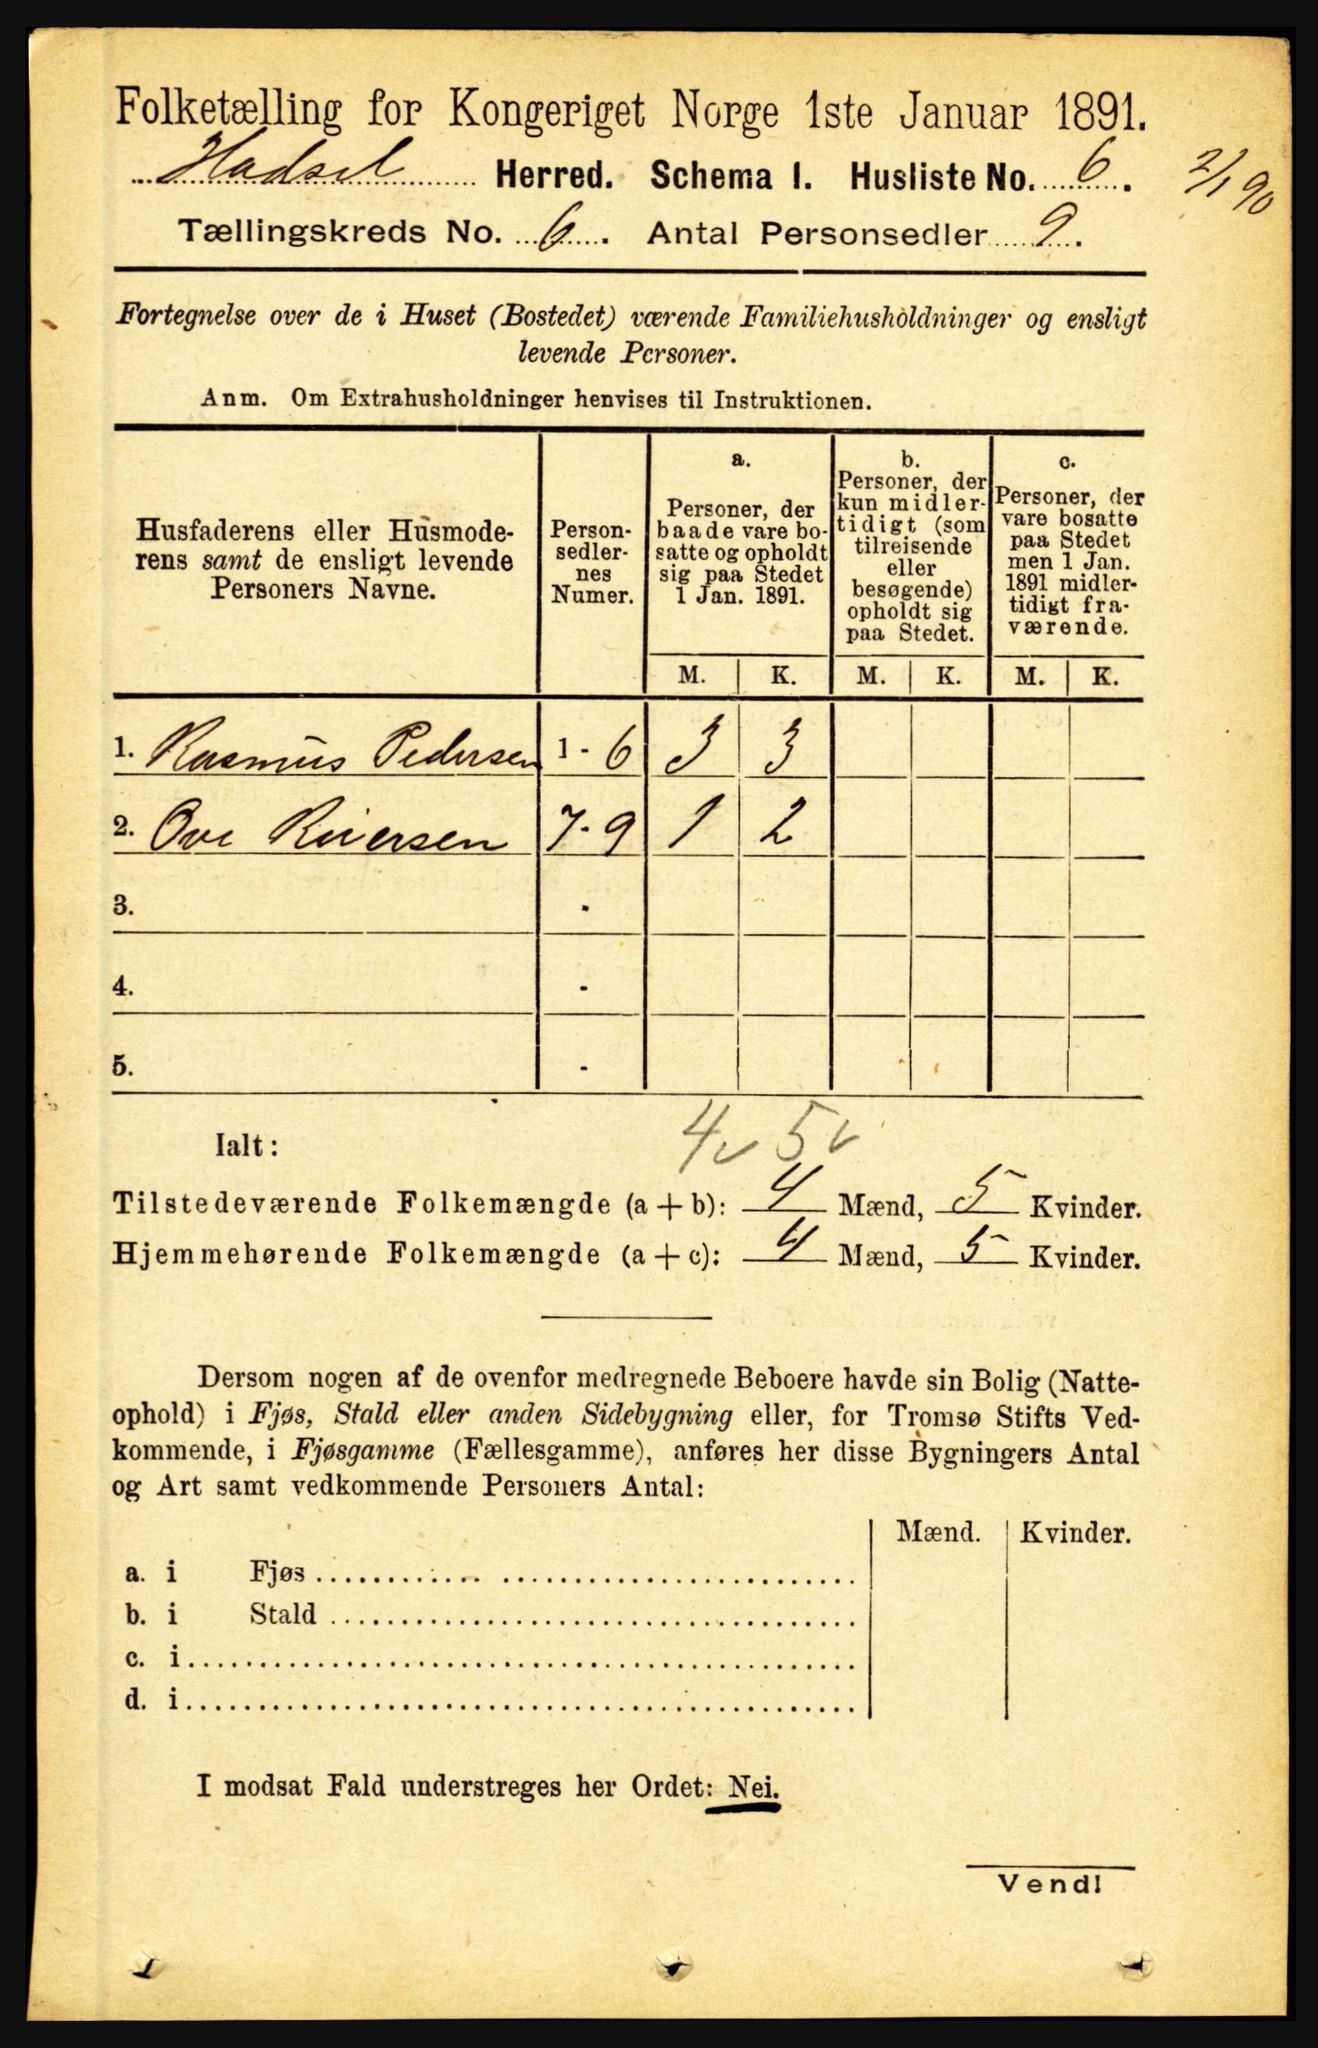 Folketælling for Kongeriget Norge 1ste Januar 1891.
Hadsel Herred. Schema I. Husliste No. 6.
2/1 90
Tællingskreds No. 6. Antal Personsedler 9.
Fortegnelse over de i Huset (Bostedet) værende Familiehusholdninger og ensligt
levende Personer.
Anm. Om Extrahusholdninger henvises til Instruktionen.
Husfaderens eller Husmode-
rens samt de ensligt levende
Personers Navne.
Person-
sedler-
nes
Numer.
a.
Personer, der
baade vare bo-
satte og opholdt
sig paa Stedet
1 Jan. 1891.
b.
Personer, der
kun midler-
tidigt (som
tilreisende
eller
besøgende)
opholdt sig
paa Stedet.
c.
Personer, der
vare bosatte
paa Stedet
men 1 Jan.
1891 midler-
tidigt fra-
værende.
M. K. M. K. M. K.
1. Rasmus Pedersen 1 - 6 3 3
2. Ove Riversen 7 - 9 1 2
3. -
4. -
5. -
4 5
Ialt:
Tilstedeværende Folkemængde (a + b): 4 Mænd, 5 Kvinder.
Hjemmehørende Folkemængde (a + c): 4 Mænd, 5 Kvinder.
Dersom nogen af de ovenfor medregnede Beboere havde sin Bolig (Natte-
ophold) i Fjøs, Stald eller anden Sidebygning eller, for Tromsø Stifts Ved-
kommende, i Fjøsgamme (Fællesgamme), anføres her disse Bygningers Antal
og Art samt vedkommende Personers Antal:
Mænd. Kvinder.
a. i Fjøs
b. i Stald
c. i
d. i
I modsat Fald understreges her Ordet: Nei.
Vend!